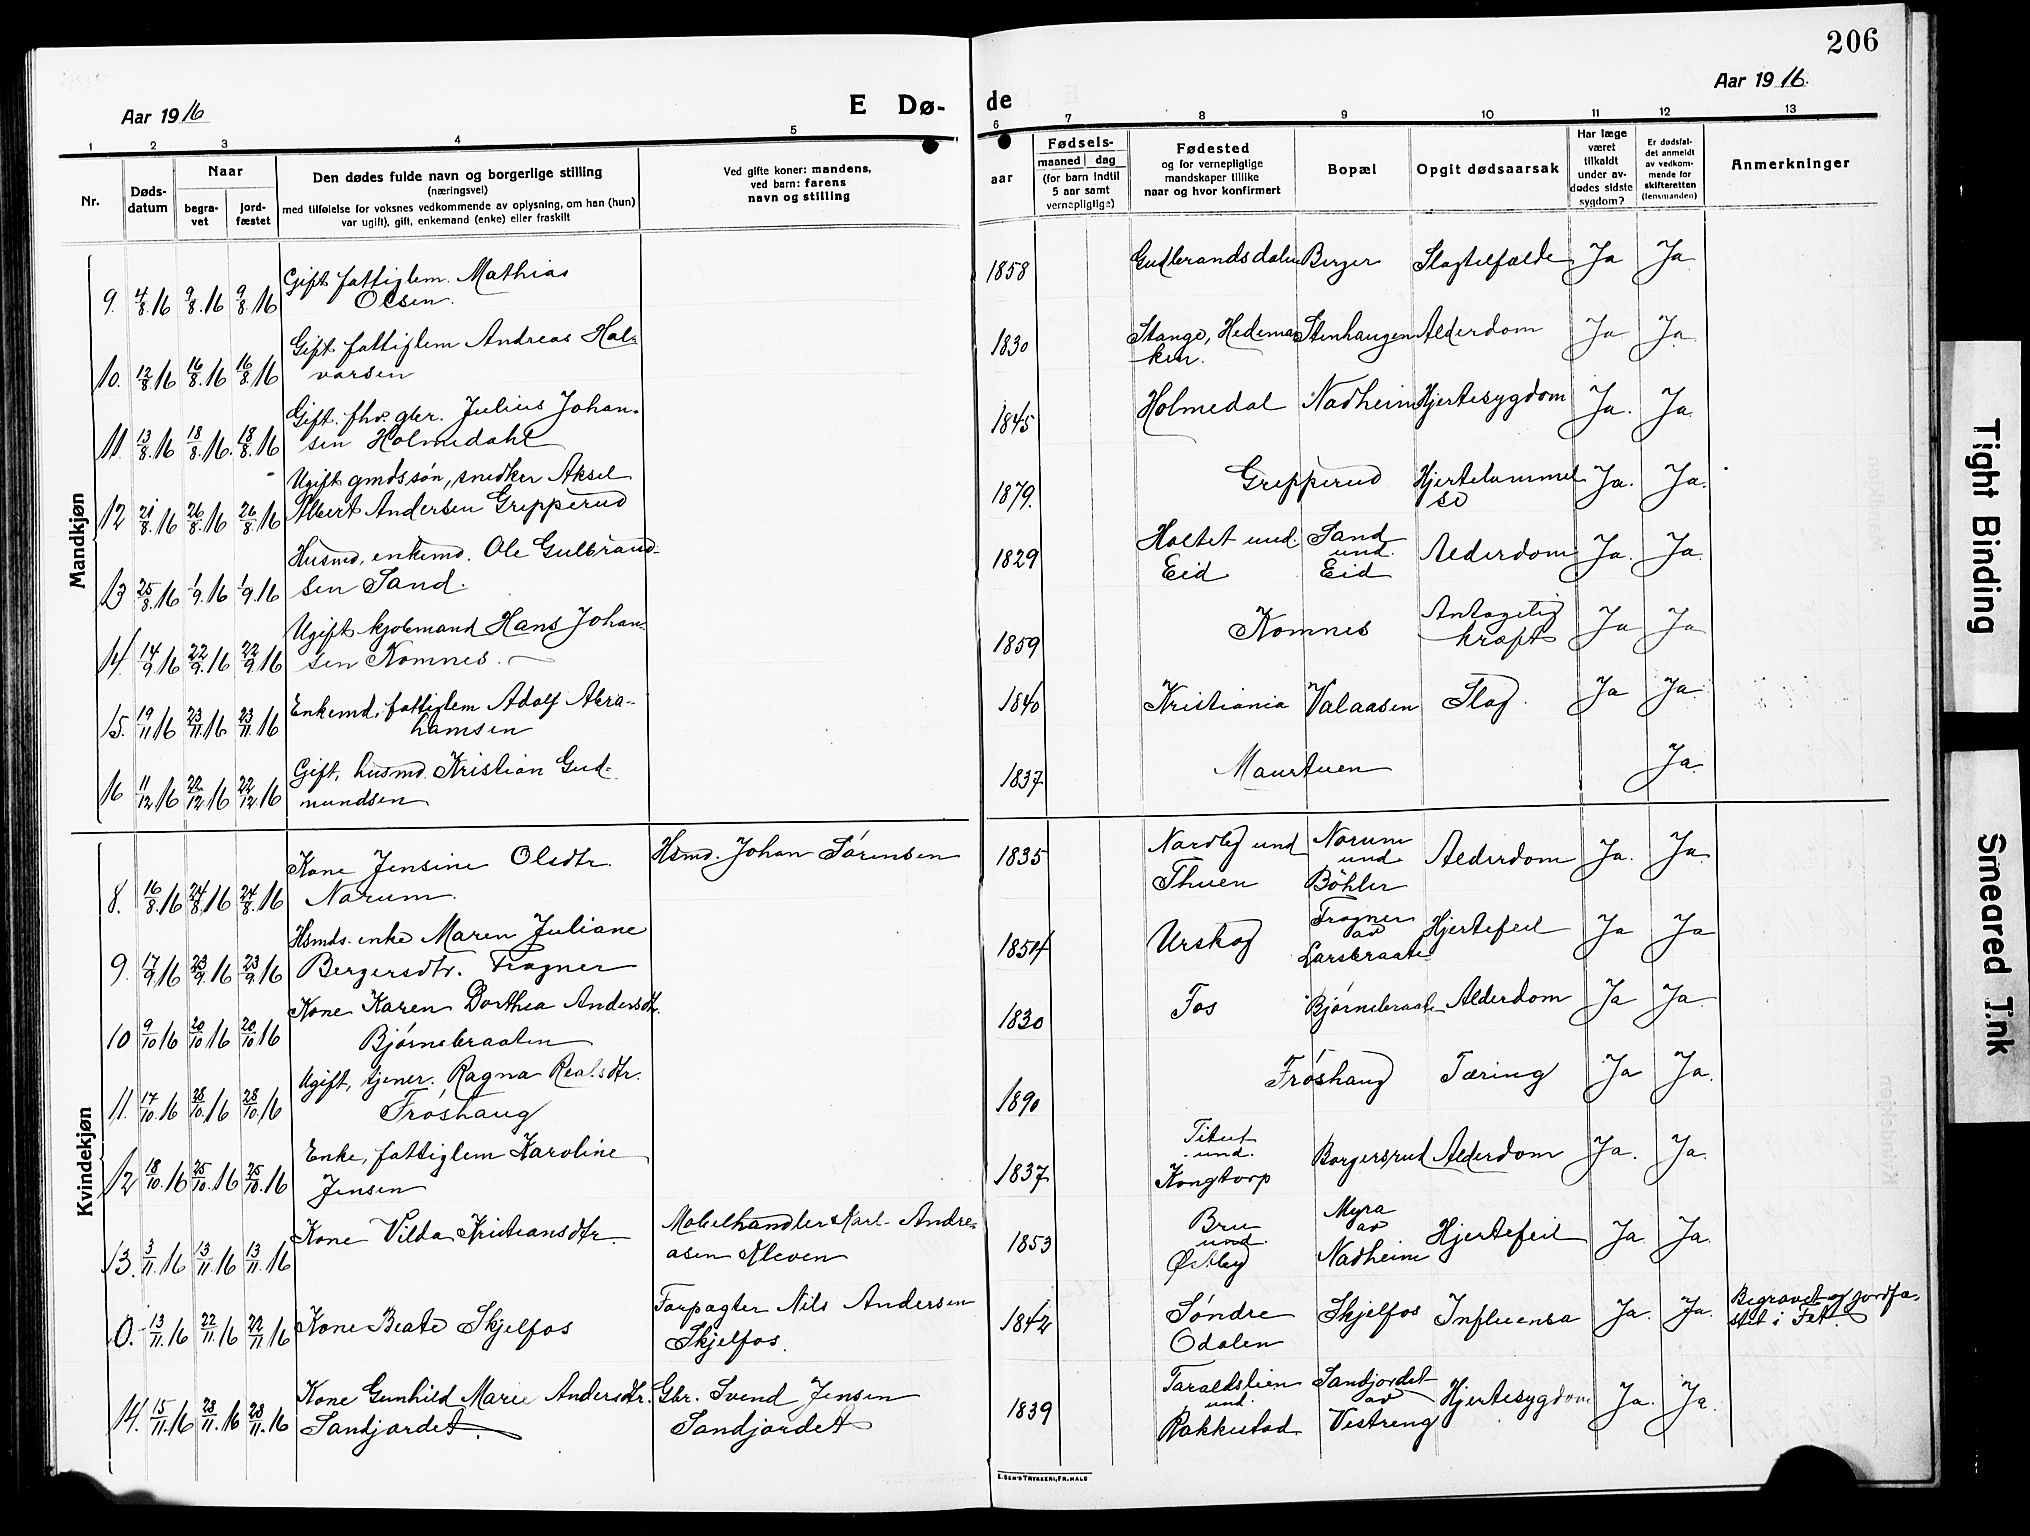 206
Aar 1916
E Dø-
de
Aar 1916.
1 2 3 4 5 6 7 8 9 10 11 12 13
Nr.
Døds-
datum
Naar
begra-
vet
jord-
fæstet
Den dødes fulde navn og borgerlige stilling
(næringsvei)
med tilføielse for voksnes vedkommende av oplysning, om han (hun)
var ugift), gift, enkemand (enke) eller fraskilt
Ved gifte koner: mandens,
ved barn: farens
navn og stilling
aar
Fødsels-
maaned dag
(for barn indtil
5 aar samt
vernepligtige)
Fødested
og for vernepligtige
mandskaper tillike
naar og hvor konfirmert
Bopæl
Opgit dødsaarsak
Har læge
været
tilkaldt
under av-
dødes sidste
sygdom?
Er dødsfal-
det anmeldt
av vedkom-
mende for
skifteretten
(lensmanden)
Anmerkninger
Mandkjøn
Gift fattiglem. Mathias
9. 4/8.16 9/8.16 9/8.16 Olsen.
1858 Gudbrandsdalen Berger Slagtilfælde Ja Ja
Gift fattiglem Andreas Hal-
10. 12/8.16 16/8.16 16/8.16 vorsen
1830 Stange, Hedemar- Stenhaugen Alderdom Ja Ja
ken.
Gift. fhv. gbr. Julius Johan-
11. 13/8.16 18/8.16. 18/8.16 sen Holmedahl
1845 Holmedal Nadheim Hjertesygdom Ja. Ja.
Ugift gmdssøn, snedker Aksel
12 21/8.16 26/8.16 26/8.16 Albert Andersen Gripperud
1879. Gripperud Hjertelammel
se Ja. Ja.
Husmd, enkemd. Ole Gulbrand-
13 25/8.16 1/9.16 1/9.16 sen Sand.
1829 Holtet und. Sand Alderdom Ja. Ja.
und.
Eid Eid
Ugift kjøbmand Hans Johan-
14. 14/9.16 22/9.16 22/9.16 sen Komnes.
1859 Komnes Antagelig Ja Ja
kræft
Enkemd, fattiglem Adolf Abra-
15. 19/11.16 23/11.16 23/11.16 hamsen
1840 Kristiania Valaasen Slag. Ja Ja.
Gift, husmd. Kristian Gud-
16 11/12.16 22/12.16 22/12.16 mundsen
1837. Maurtuen Ja.
Kvindekjøn
Kone Jensine Olsdtr. Hsmd. Johan Sörensen
8. 16/8.16 24/8.16 24/8.16 Norum.
1835 Nordby und Norum Alderdom Ja. Ja
und
Thuen Böhler
Hsmds. enke Maren Juliane
9. 17/9.16 23/9.16 23/9.16 Bergersdtr. Fragner
1854 Urskog Fragner Hjertefeil Ja Ja
av
Larsbraate
Kone Karen Dorthea Andersdtr.
10 9/10.16 20/10.16 20/10.16 Bjørnebraaten
1830 Fos Bjørnebraate Alderdom Ja Ja.
Ugift, tjener. Ragna
11. 17/10.16 28/10.16 28/10.16 Fröshaug
1890 Fröshaug Tæring Ja Ja.
Enke, fattiglem Karoline
12 18/10.16 25/10.16 25/10.16 Jensen
1837
und.
Kongtorp Borgersrud Alderdom Ja. Ja.
Kone Vilda Kristiansdtr. Møbelhandler Karl Andre-
13. 3/11.16 13/11.16 13/11.16 asen Kleven
1853 Bru Myra Hjertefeil Ja. Ja.
und. av
Østby Nadheim
0. 13/11.16 22/11.16 22/11.16 Kone Beate Skjelfos Forpagter Nils Andersen
Skjelfos.
1842 Søndre Skjelfos Influensa Ja. Ja. Begravet og jordfæ-
Odalen stet i Fet.
Kone Gunhild Marie Andersdtr. Gbr. Svend Jensen
14. 15/11.16 28/11.16 28/11.16 Sandjordet. Sandjordet
1839 Taraldslien Sandjordet Hjertesygdom Ja. Ja.
und. av
Rakkestad Vestreng
E. SEM'S TRYKKERI, FR.HALD
Tight Binding
Smeared Ink